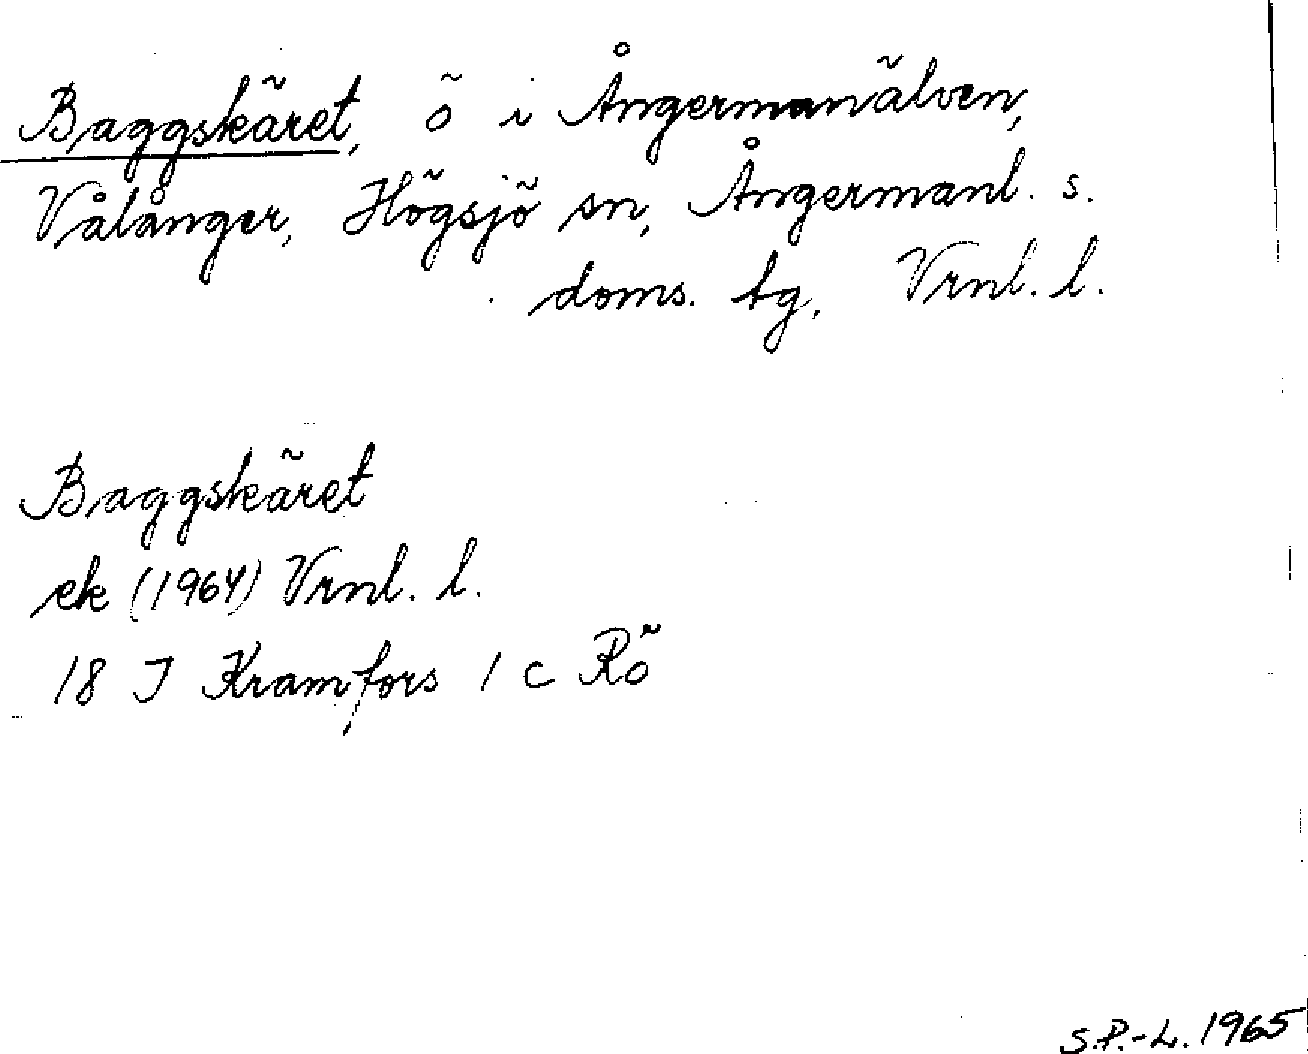 Baggskäret, ö i Ångermanälven,
Vålånger, Högsjö sn, Ångermanl. s.
doms. tg, Vrnl. l.
Baggskäret
ek (1964) Vrnl. l.
18 J Kramfors 1 c Rö
S.P.-L. 1965